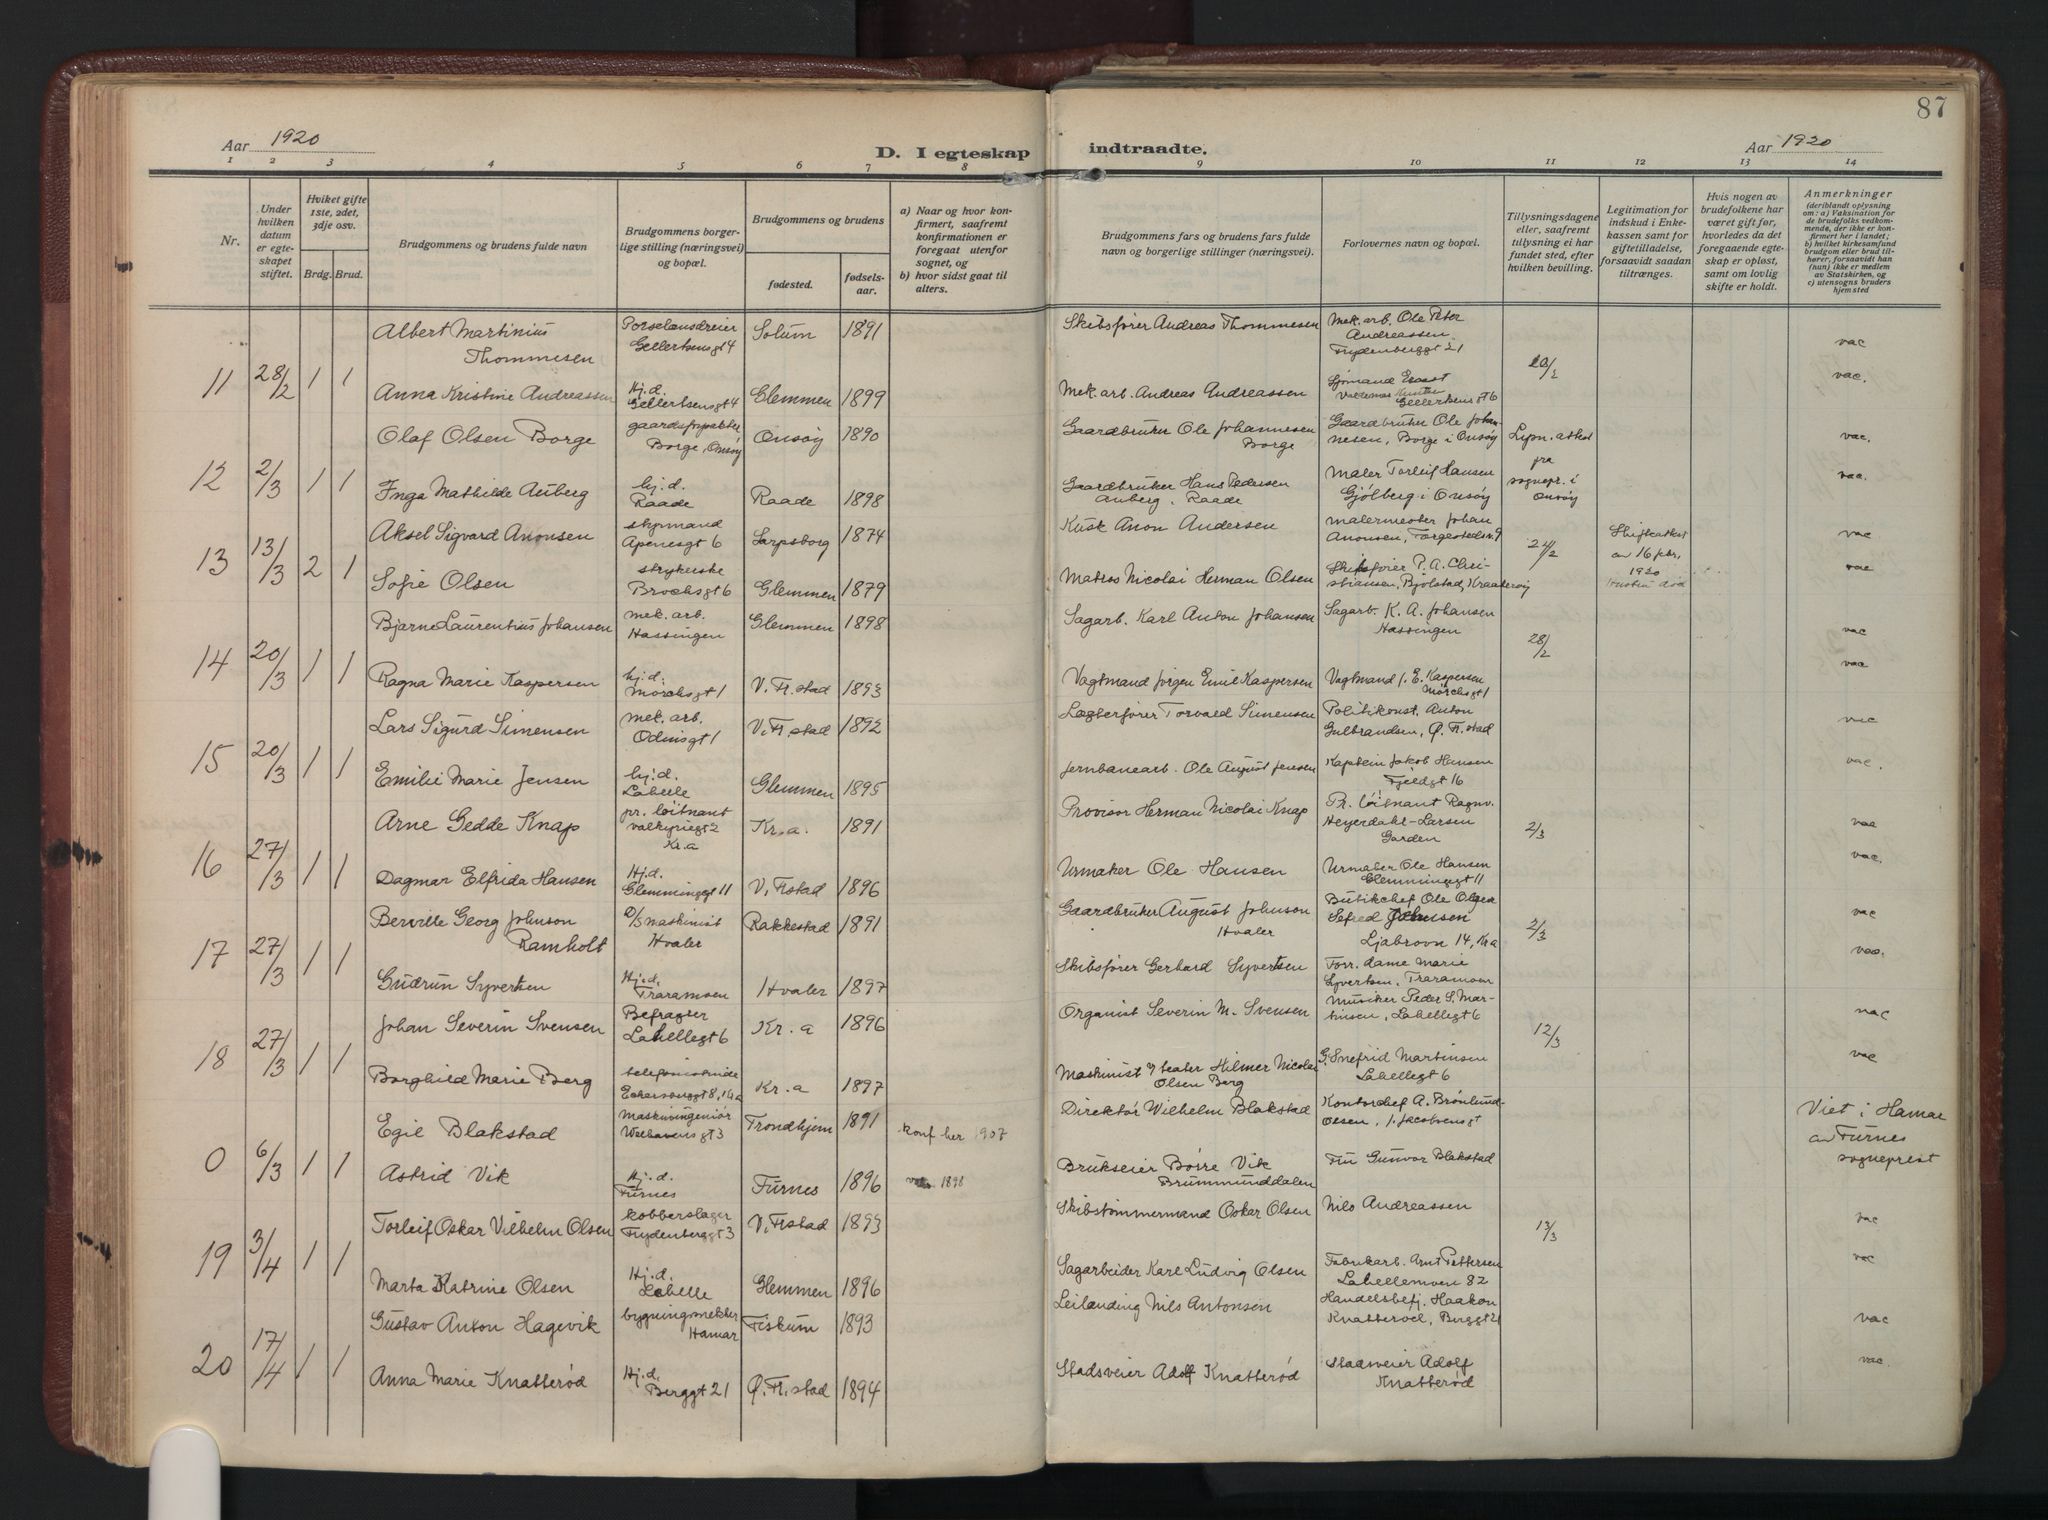 87
Aar 1920
D. I egteskap indtraadte.
Aar 1920
1 2 3 4 5 6 7 8 9 10 11 12 13 14
Nr.
Under hvilken datum er egteskapet stiftet.
Hviket gifte 1ste, 2det, 3dje osv.
Brdg. Brud.
Brudgommens og brudens fulde navn
Brudgommens borgerlige stilling (næringsvei) og bopæl.
Brudgommens og brudens
fødested.
fødselsaar.
a) Naar og hvor konfirmert, saafremt konfirmationen er foregaat utenfor sognet, og
b) hvor sidst gaat til alters.
Brudgommens fars og brudens fars fulde navn og borgerlige stillinger (næringsvei).
Forlovernes navn og bopæl.
Tillysningsdagene eller, saafremt tillysning ei har fundet sted, efter hvilken bevilling.
Legitimation for indskud i Enkekassen samt for giftetilladelse, forsaavidt saadan tiltrænges.
Hvis nogen av brudefolkene har været gift før, hvorledes da det foregaaende egteskap er opløst, samt om lovlig skifte er holdt.
Anmerkninger
(deriblandt oplysning om: a) Vaksination for de brudefolks vedkommende, der ikke er konfirmert her i landet;
b) hvilket kirkesamfund brudgom eller brud tilhører, forsaavidt han (hun) ikke er medlem av Statskirken, og
c) utensogns bruders hjemsted
11 28/2 1 1
Albert Martinius Thommesen Porselænsdreier Gellertsensgt 4 Solum 1891 Skibsfører Andreas Thommesen Mek. arb. Ole Peter Andreassen Frydenberggt 21 20/2 vac
Anna Kristine Andreassen Hj.d. Gellertsensgt 4 Glemmen 1899 Mek. arb. Andreas Andreassen Sjømand Gellertsensgt 6 vac.
12 2/3 1 1
Olaf Olsen Borge Borge, Onsøy Onsøy 1890 Gaardbruker Ole Johannesen Borge Gaardbruker Ole Johannesen, Borge i Onsøy Lysn. attest fra sognepr. i Onsøy vac.
Inga Mathilde Auberg hj.d. Raade Raade 1898 Gaardbruker Hans Pedersen Auberg, Raade Maler Torleif Hansen Gjølberg i Onsøy vac.
13 13/3 2 1
Aksel Sigvard Anonsen Apenesgt 6 Sarpsborg 1874 Kusk Anon Andersen Malermester Johan Anonsen, 24/2 Skifteattest av 16 febr. 1920 vac
Sofie Olsen strykerske Brochsgt 6 Glemmen 1879 Matros Nicolai Herman Olsen Skibsfører P. A. Christiansen, Bjølstad, Kraakerøy vac
14 20/3 1 1
Bjarne Laurentius Johansen mek. arb. Hassingen Glemmen 1898 Sagarb. Karl Anton Johansen Sagarb. K. A. Johansen Hassingen 28/2 vac
Ragna Marie Kaspersen hj.d. Mørchsgt 1 V. Fr.stad 1893 Vagtmand Jørgen Emil Kaspersen Vagtmand J. E. Kaspersen Mørchsgt 1 vac
15 20/3 1 1
Lars Sigurd Simensen mek. arb. Odinsgt 1 V. Fr.stad 1892 Lægterfører Torvald Simensen Politikonst. Anton Gulbrandsen, Ø. Fr.stad vac
Emilie Marie Jensen hj.d. Labelle Glemmen 1895 Jernbanearb. Ole August Jensen Kaptein Jakob Hansen Fjeldgt 16 vac.
16 27/3 1 1
Arne Gedde Knap pr. løitnant Valkyriegt 2 Kr.a Kr.a. 1891 Provisor Herman Nicolai Knap Pr. løitnant Ragnv. Heyerdahl-Larsen Garden 2/3 vac
Dagmar Elfrida Hansen Hj.d. Glemminggt 11 V. Frstad 1896 Urmaker Ole Hansen Urmaker Ole Hansen Glemminggt 11 vac.
17 27/3 1 1
Berville Georg Johnson Ramholt D/S maskinist Hvaler Rakkestad 1891 Gaardbruker August Johnson Hvaler Butikchef Ole Sefred Ljabrovn 14, Kr.a 2/3 vac
Gudrun Syvertsen Hj.d. Hvaler 1897 Skibsfører Gerhard Syvertsen Forr. dame Marie Syvertsen, vac.
18 27/3 1 1
Johan Severin Svensen Befragter Labellegt 6 Kr.a 1896 Organist Severin M. Svensen Musiker Peder S. Martinsen, Labellegt 6 12/3 vac
Borghild Marie Berg Kr.a 1897 Maskinist v/ teater Hilmer Nicolai Olsen Berg G. Snefrid Martinsen Labellegt 6 vac
0 6/3 1 1
Egil Blakstad Maskiningeniør Welhavensgt 3 Trondhjem 1891 konf her 1907 Direktør Wilhelm Blakstad Kontorchef A. Brønlund-Olsen, J. Jacobsensgt Viet i Hamar av Furnes sogneprest
Astrid Vik Hj.d. Furnes Furnes 1896 1898 Brukseier Børre Vik Brummunddalen Fru Gunvor Blakstad
19 3/4 1 1
Torleif Oskar Vilhelm Olsen kobberslager Frydenberggt 3 V. Frstad 1893 Skibstømmermand Oskar Olsen Nils Andreassen 13/3 vac
Marta Katrine Olsen Hj.d. Labelle Glemmen 1896 Sagarbeider Karl Ludvig Olsen Fabrikarb. Arnt Pettersen Labellemoen 82 vac
20 17/4 1 1
Gustav Anton Hagevik Hamar Fiskum 1893 Leilænding Nils Antonsen Handelsbetj. Haakon Knatterød, Berggt 21 vac
Anna Marie Knatterød Hj.d. Berggt 21 Ø. Fr.stad 1894 Stadsveier Adolf Knatterød Stadsveier Adolf Knatterød vac.